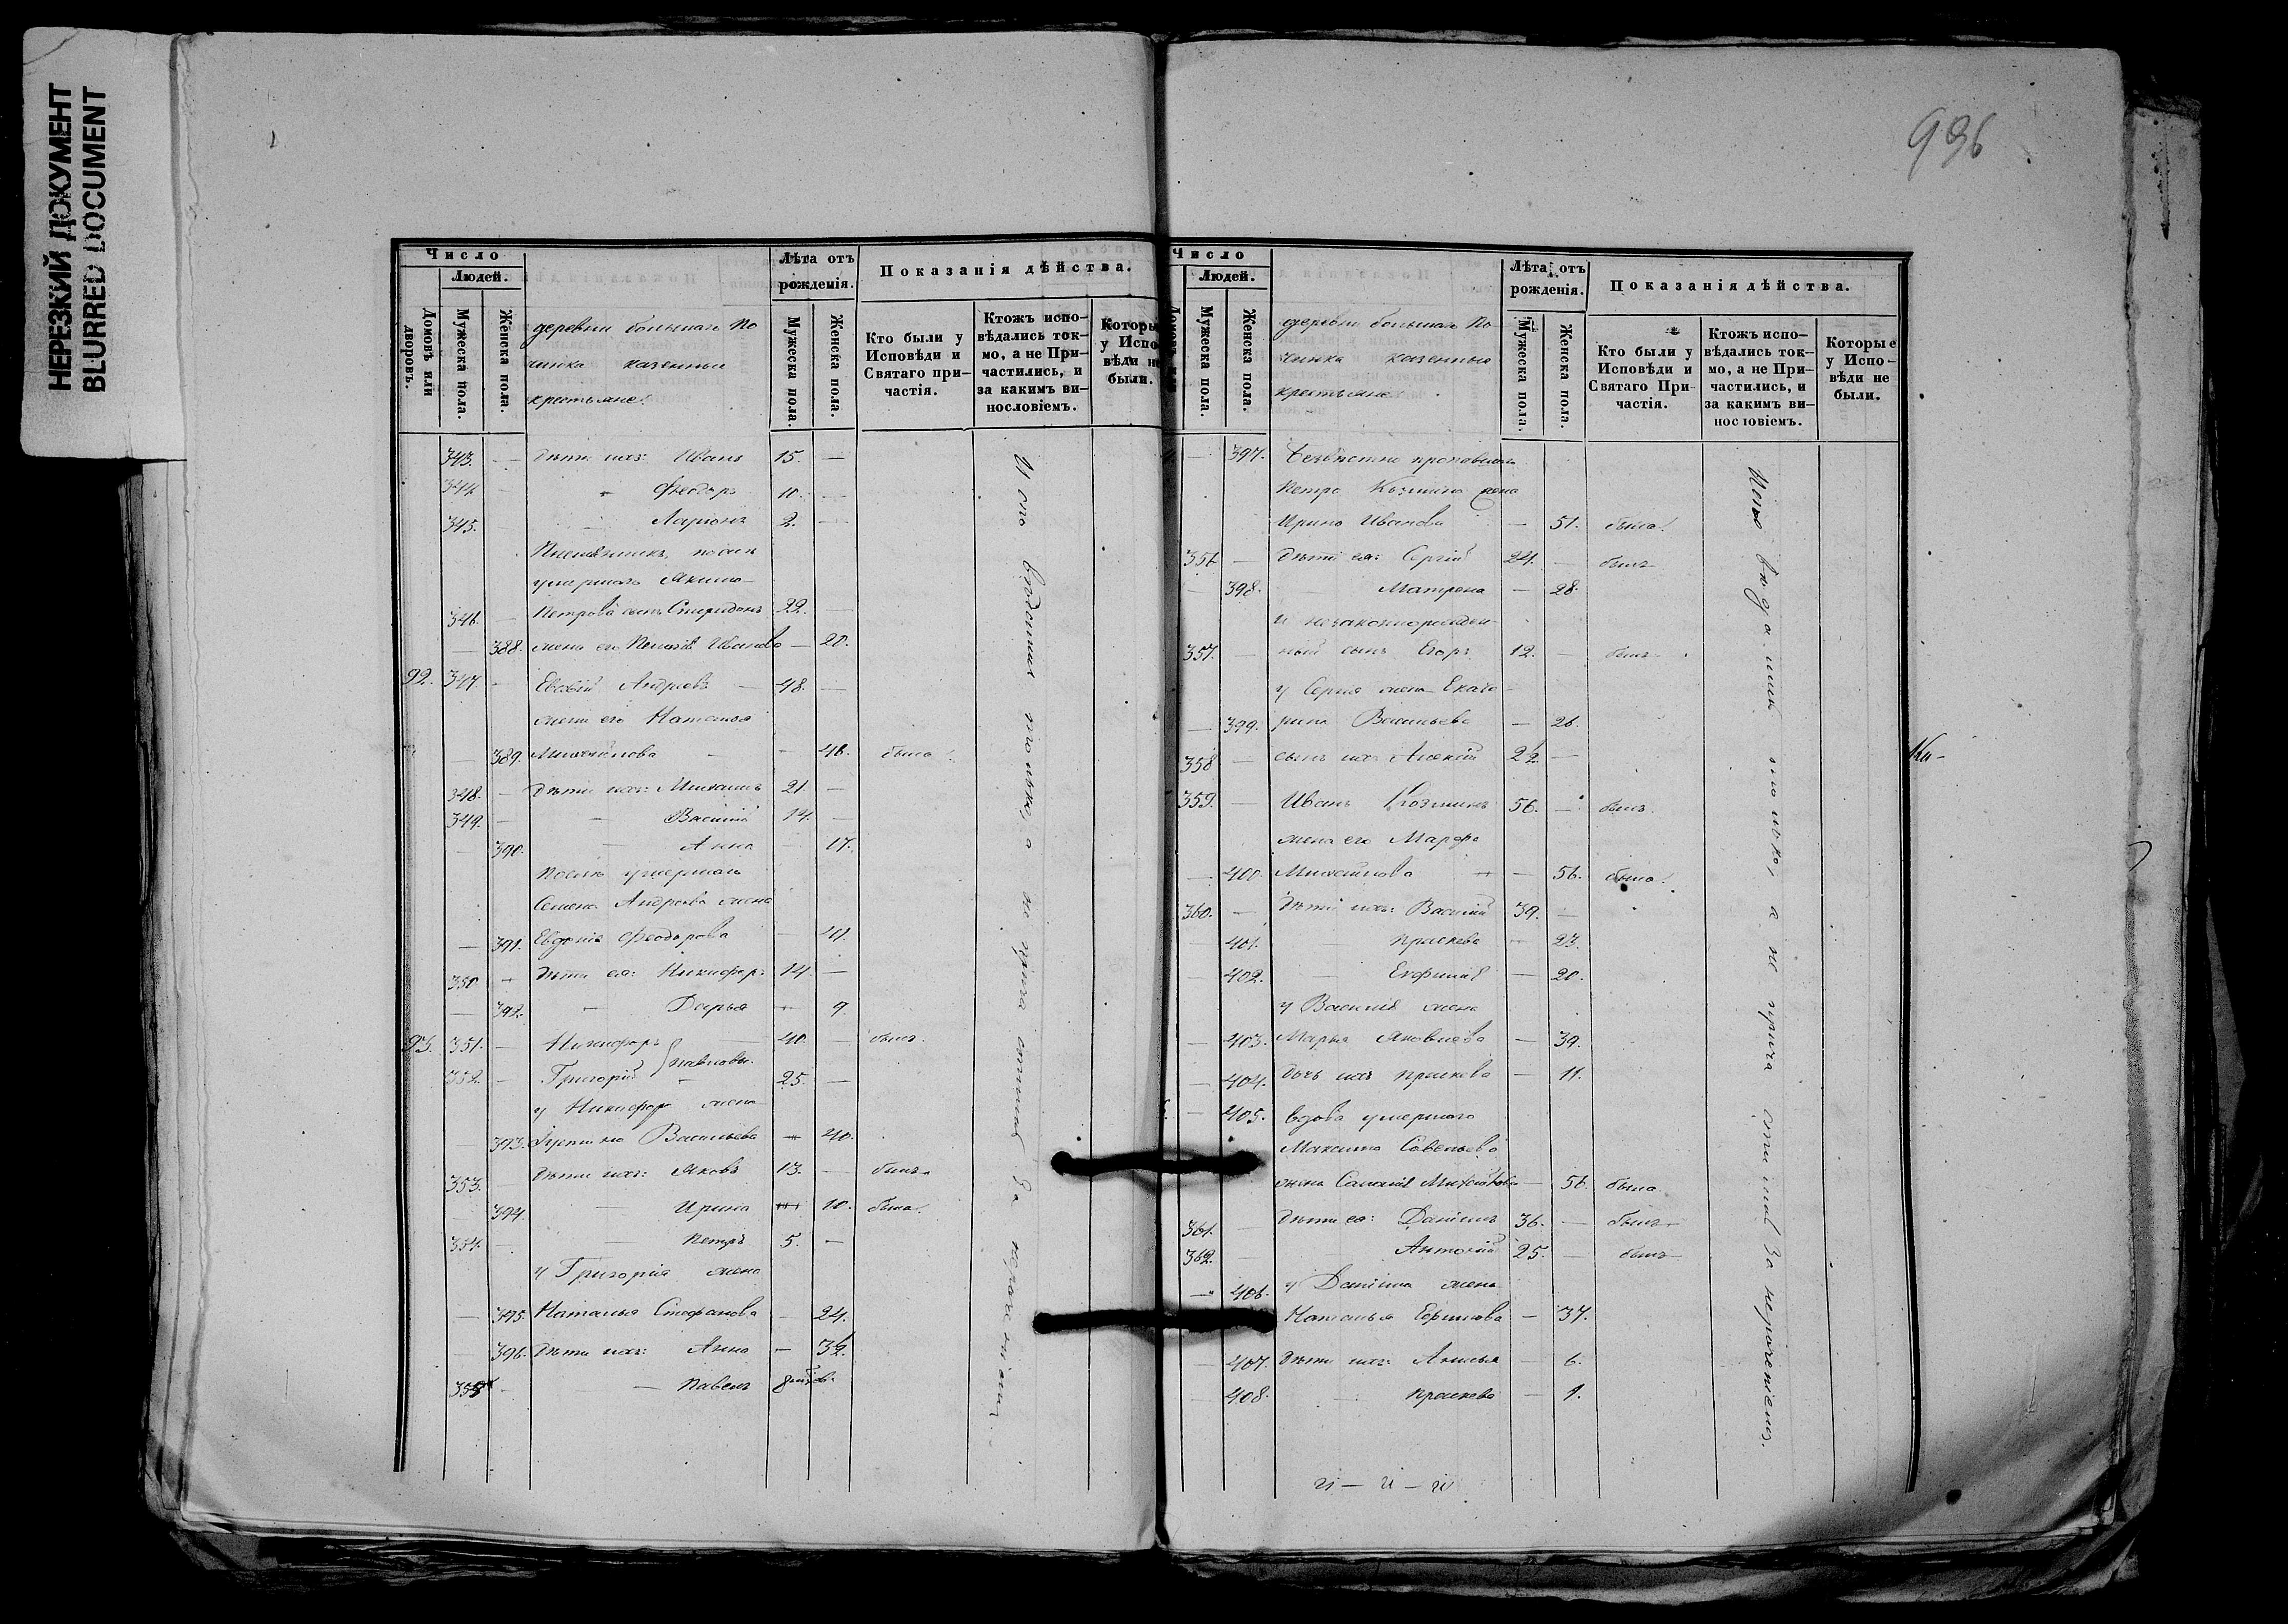 НЕРЕЗКИЙ ДОКУМЕНТ
BLURRED DOCUMENT
936
Число
Людей.
Домовъ или дворовъ.
Мужеска пола.
Женска пола.
деревни большаго По
чинка казенные
крестьяне.
Лѣта отъ рожденія.
Мужеска пола.
Женска пола.
Показанія дѣйства.
Кто были у Исповѣди и Святаго причастія.
Ктожъ исповѣдались токмо, а не Причастились, и за какимъ винословіемъ.
Которы у Испо вѣди не были.
343. — дѣти ихъ: Иванъ 15. —
344 — Феодоръ 10. —
345. — Ларіонъ 2. —
Племянникъ, послѣ
умершаго Акима
346. — Петрова сынъ Спиридонъ 22. —
— 388. жена его Пелагія Иванова — 20.
92. 347. — Евсевій Андреевъ — 48. —
жена его Наталья
— 389. Михайлова — — 46. была.
348. — Дѣти ихъ: Михаилъ 21 —
349. — Василій 14. —
— 390. — Анна — 17.
Послѣ умершаго
Семена Андреева жена
— 391. Евдокія Феодорова — 41.
350 — дѣти ея: Никифоръ 14. —
— 392. — Дарья — 9
93. 351. — Никифоръ 40. — былъ.
352. — Григорій } Павловы. 25. —
у Никифора жена
— 393. Васильева — 40.
353. Дѣти ихъ: Яковъ 13. — былъ.
— 394. — Ирина — 10. была.
354. — Петръ 5. —
у Григорія жена
— 395. Наталья Стефанова — 24.
— 396. Дѣти ихъ: Анна — 3½.
355 — — Павелъ
И сповѣдались только, а не прича стились за нерачениемъ.
Число
Людей.
Мужеска пола.
Женска пола.
деревни большаго По
чинка казенные
крестьяне
Лѣта отъ рожденія.
Мужеска пола.
Женска пола.
Показанія дѣйства.
Кто были у Исповѣди и Святаго Причастія.
Ктожъ исповѣдались токмо, а не Причастились, и за какимъ винословіемъ.
Которые у Исповѣди не были.
— 397. Безвѣстно
Петра Козмина жена
Ирина Иванова — 51. была.
356 — Дѣти ея: Сергій 24. — былъ
— 398. Матрена — 28.
и незаконнорожден
357. — ный сынъ Егоръ 12. — былъ
у Сергія жена Екате
— 399. рина Васильева — 26.
358 — сынъ ихъ Алексій 2½ —
359. — Иванъ Козминъ 56. — былъ.
жена его Марфа
— 400. Михайлова — 56. была.
360. — Дѣти ихъ: Василій 39. —
401. Праскева — 23.
— 402. — Евфимія — 20.
у Василія жена
— 403. Марья Яковлева — 39.
— 404. Дочь ихъ Праскева — 11.
— 405. вдова умершаго
Максима Савельева
жена Михайлова — 56. была
361. — Дѣти ея: Даніилъ 36. — былъ
362. — Антоній 25. — былъ
— 406. у Даніила жена
Наталья Ефимова — 37.
— 407. Дѣти ихъ: — 6.
— 408. — Праскева — 1.
Исповѣдались только, а не прича стились за нерачениемъ.